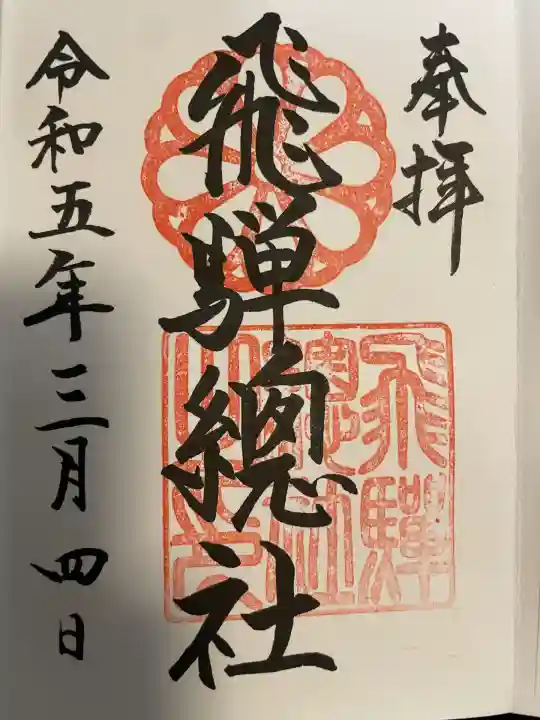 奉拝
飛騨總社
飛騨
總社
令和五年三月四日